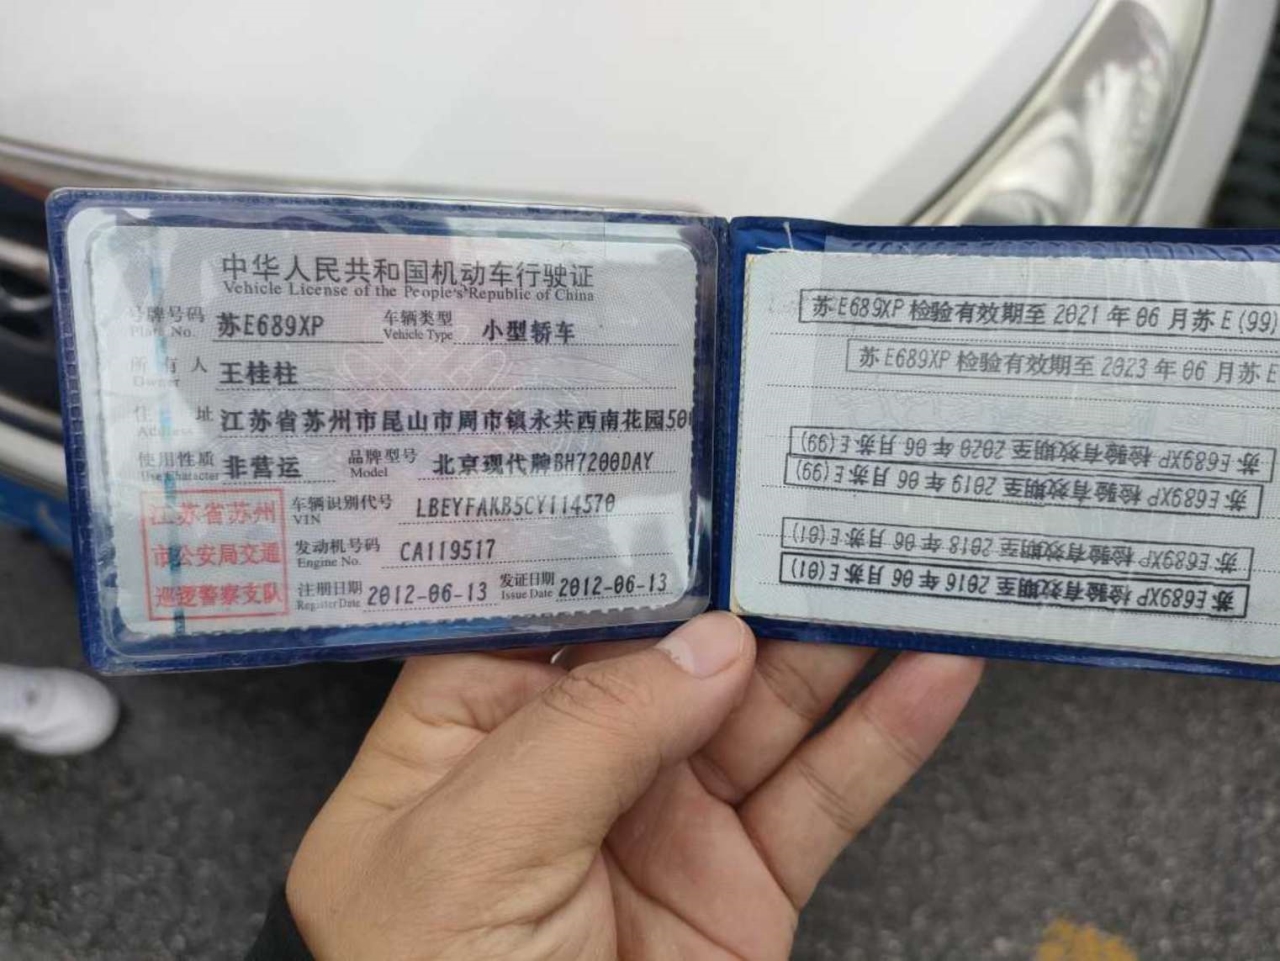 中华人民共和国机动车行驶证
Vehicle License of the People's Republic of China
号牌号码 苏E689XP 车辆类型 小型轿车
Plate No. Vehicle Type
所有人 王桂柱
Owner
住址 江苏省苏州市昆山市周市镇永共西南花园50
Address
使用性质 非营运 品牌型号 北京现代牌BH7200DAY
Use Character Model
江苏省苏州
市公安局交通
巡逻警察支队
车辆识别代号 LBEYFAKB5CY114570
VIN
发动机号码 CA119517
Engine No.
注册日期 2012-06-13 发证日期 2012-06-13
Register Date Issue Date
苏E689XP 检验有效期至 2021 年 06 月苏 E (99)
苏E689XP 检验有效期至 2023 年 06 月苏 E
苏E689XP 检验有效期至 2020 年 06 月苏 E (99)
苏E689XP 检验有效期至 2019 年 06 月苏 E (99)
苏E689XP 检验有效期至 2018 年 06 月苏 E (01)
苏E689XP 检验有效期至 2016 年 06 月苏 E (01)